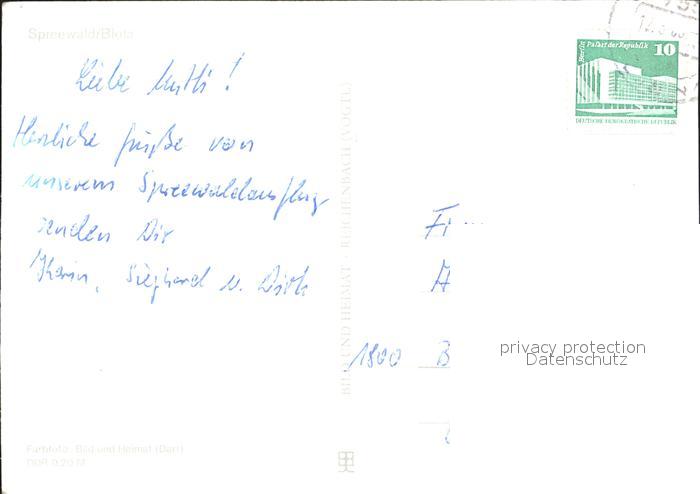 Spreewald/Blota
Berlin Palast der Republik 10
DEUTSCHE DEMOKRATISCHE REPUBLIK
Liebe Mutti!
Herzliche Grüße von
unserem Spreewaldausflug
senden Dir
Karin, Sieghard u. Dirk
BILD UND HEIMAT · REICHENBACH (VOGTL)
Fr...
A
1800 B
privacy protection
Datenschutz
Farbfoto: Bild und Heimat (Darr)
DDR 0,20 M